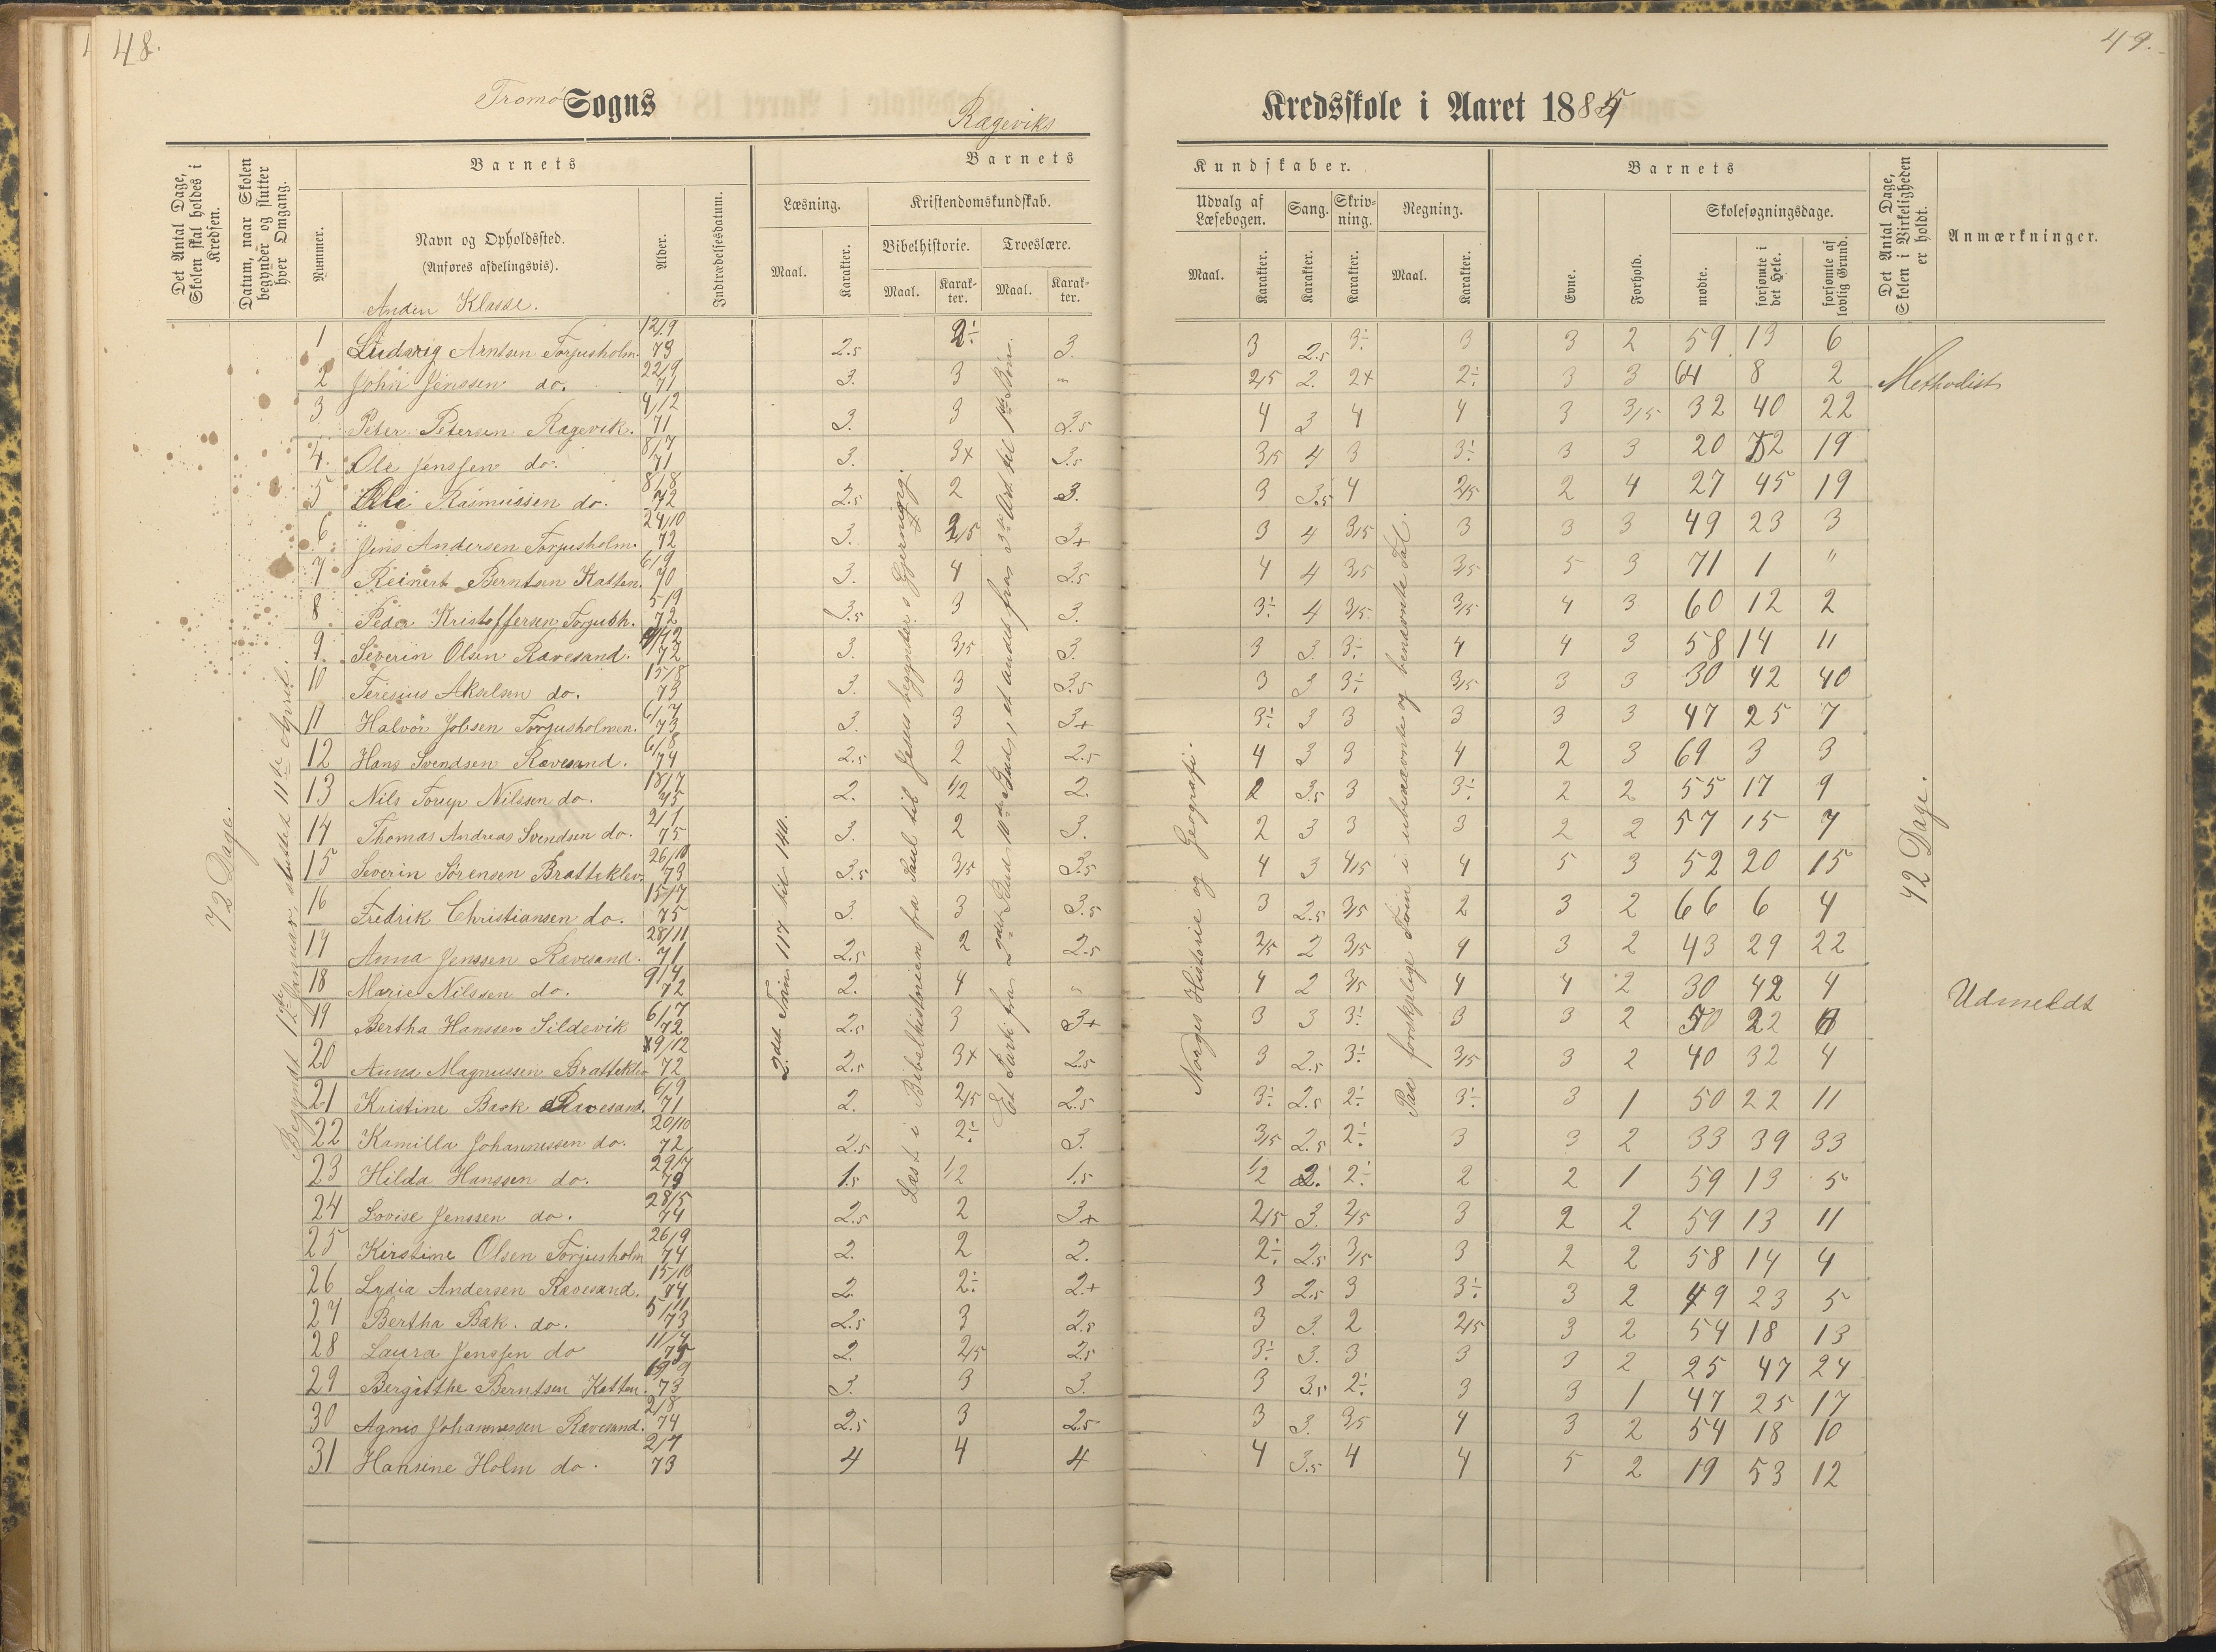 48.
49.
Tromø Sogns
Rægeviks
Kredsskole i Aaret 1885
Det Antal Dage, Skolen skal holdes i Kredsen.
Datum, naar Skolen begynder og slutter hver Omgang.
Barnets
Nummer.
Navn og Opholdssted.
(Anføres afdelingsvis).
Alder.
Indtrædelsesdatum.
Barnets
Læsning.
Maal.
Karakter.
Kristendomskundskab.
Bibelhistorie.
Maal.
Karakter.
Troeslære.
Maal.
Karakter.
Kundskaber.
Udvalg af Læsebogen.
Maal.
Karakter.
Sang.
Karakter.
Skrivning.
Karakter.
Regning.
Maal.
Karakter.
Barnets
Evne.
Forhold.
Skolesøgningsdage.
mødte.
forsømte i det Hele.
forsømte af lovlig Grund.
Det Antal Dage, Skolen i Virkeligheden er holdt.
Anmærkninger.
Anden Klasse.
72 Dage.
Begyndt 12te Januar, sluttet 11te April.
2det Trin 117 til 140.
Læst i Bibelhistorien fra Saul til Jesus begynder s. Gjerning.
Et Parti fra 2det Bud–10de Bud, et andet fra 3die Art. til 1ste Bøn.
Norges Historie og Geografi.
Paa forskjelige Trin i ubenævnte og benævnte Tal.
42 Dage.
1 Ludvig Arntsen Torjusholm. 12/9 73 2.5 2÷ 3. 3 2.5 3÷ 3 3 2 59 13 6
2 John Jenssen do. 22/9 71 3. 3 " 2/5 2. 2+ 2÷ 3 3 64 8 2 Methodist
3 Peter Petersen Rægevik. 4/12 71 3. 3 2.5 4 3 4 4 3 3/5 32 40 22
4. Ole Jenssen do. 8/7 71 3. 3+ 3.5 3/5 4 3 3÷ 3 3 20 52 19
5 Ole Rasmussen do. 8/8 72 2.5 2 3. 3 3.5 4 2/5 2 4 27 45 19
6 Jens Andersen Torjusholm. 24/10 72 3. 2/5 3+ 3 4 3/5 3 3 3 49 23 3
7 Reinert Berntsen Katten. 6/9 70 3. 4 3.5 4 4 3/5 3/5 5 3 71 1 "
8 Peder Kristoffersen Torjush. 5/9 72 3.5 3 3. 3÷ 4 3/5 3/5 4 3 60 12 2
9. Severin Olsen Rævesand. 4/12 72 3. 3/5 3. 3 3. 3÷ 4 4 3 58 14 11
10 Teresius Akselsen do. 15/8 73 3. 3 3.5 3 3 3÷ 3/5 3 3 30 42 40
11 Halvor Jobsen Torjusholmen. 6/7 73 3. 3 3+ 3÷ 3 3 3 3 3 47 25 7
12 Hans Svendsen Rævesand. 6/8 74 2.5 2 2.5 4 3 3 4 2 3 69 3 3
13 Nils Torup Nilssen do. 18/7 75 2. 1/2 2. 2 3.5 3 3÷ 2 2 55 17 9
14 Thomas Andreas Svendsen do. 2/1 75 3. 2 3. 2 3 3 3 2 2 57 15 7
15 Severin Sørensen Bratteklev. 26/10 73 3.5 3/5 3.5 4 3 4/5 4 5 3 52 20 15
16 Fredrik Christiansen do. 15/7 75 3. 3 3.5 3 2.5 3/5 2 3 2 66 6 4
17 Anna Jenssen Rævesand. 28/11 71 2.5 2 2.5 2/5 2 3/5 4 3 2 43 29 22
18 Marie Nilssen do. 9/4 72 2. 4 " 4 2 3/5 4 4 2 30 42 4 Udmeldt
19 Bertha Hanssen Sildevik 6/7 72 2.5 3 3+ 3 3 3÷ 3 3 2 50 22
20 Anna Magnussen Bratteklev 9/12 72 2.5 3+ 2.5 3 2.5 3÷ 3/5 3 2 40 32 4
21 Kristine Bæk Rævesand. 6/9 71 2. 2/5 2.5 3÷ 2.5 2÷ 3÷ 3 1 50 22 11
22 Kamilla Johannessen do. 20/10 72 2.5 2÷ 3. 3/5 2.5 2÷ 3 3 2 33 39 33
23 Hilda Hanssen do. 29/7 73 1.5 1/2 1.5 1/2 2. 2÷ 2 2 1 59 13 5
24 Lovise Jenssen do. 28/5 74 2.5 2 3+ 2/5 3. 2/5 3 2 2 59 13 11
25 Kirstine Olsen Torjusholm 26/9 74 2. 2 2. 2÷ 2.5 3/5 3 2 2 58 14 4
26 Lydia Andersen Rævesand. 15/10 74 2. 2÷ 2+ 3 2.5 3 3÷ 3 2 49 23 5
27 Bertha Bæk. do. 5/11 73 2.5 3 2.5 3 3. 2 2/5 3 2 54 18 13
28 Laura Jenssen do 11/4 75 2. 2/5 2.5 3÷ 3. 3 3 3 2 25 47 24
29 Bergitthe Berntsen Katten. 73 3. 3 3. 3 3.5 2÷ 3 3 1 47 25 17
30 Agnes Johannessen Rævesand. 2/8 74 2.5 3 2.5 3 3. 3/5 4 3 2 54 18 10
31 Hansine Holm do. 2/7 73 4 4 4 4 3.5 4 4 5 2 19 53 12